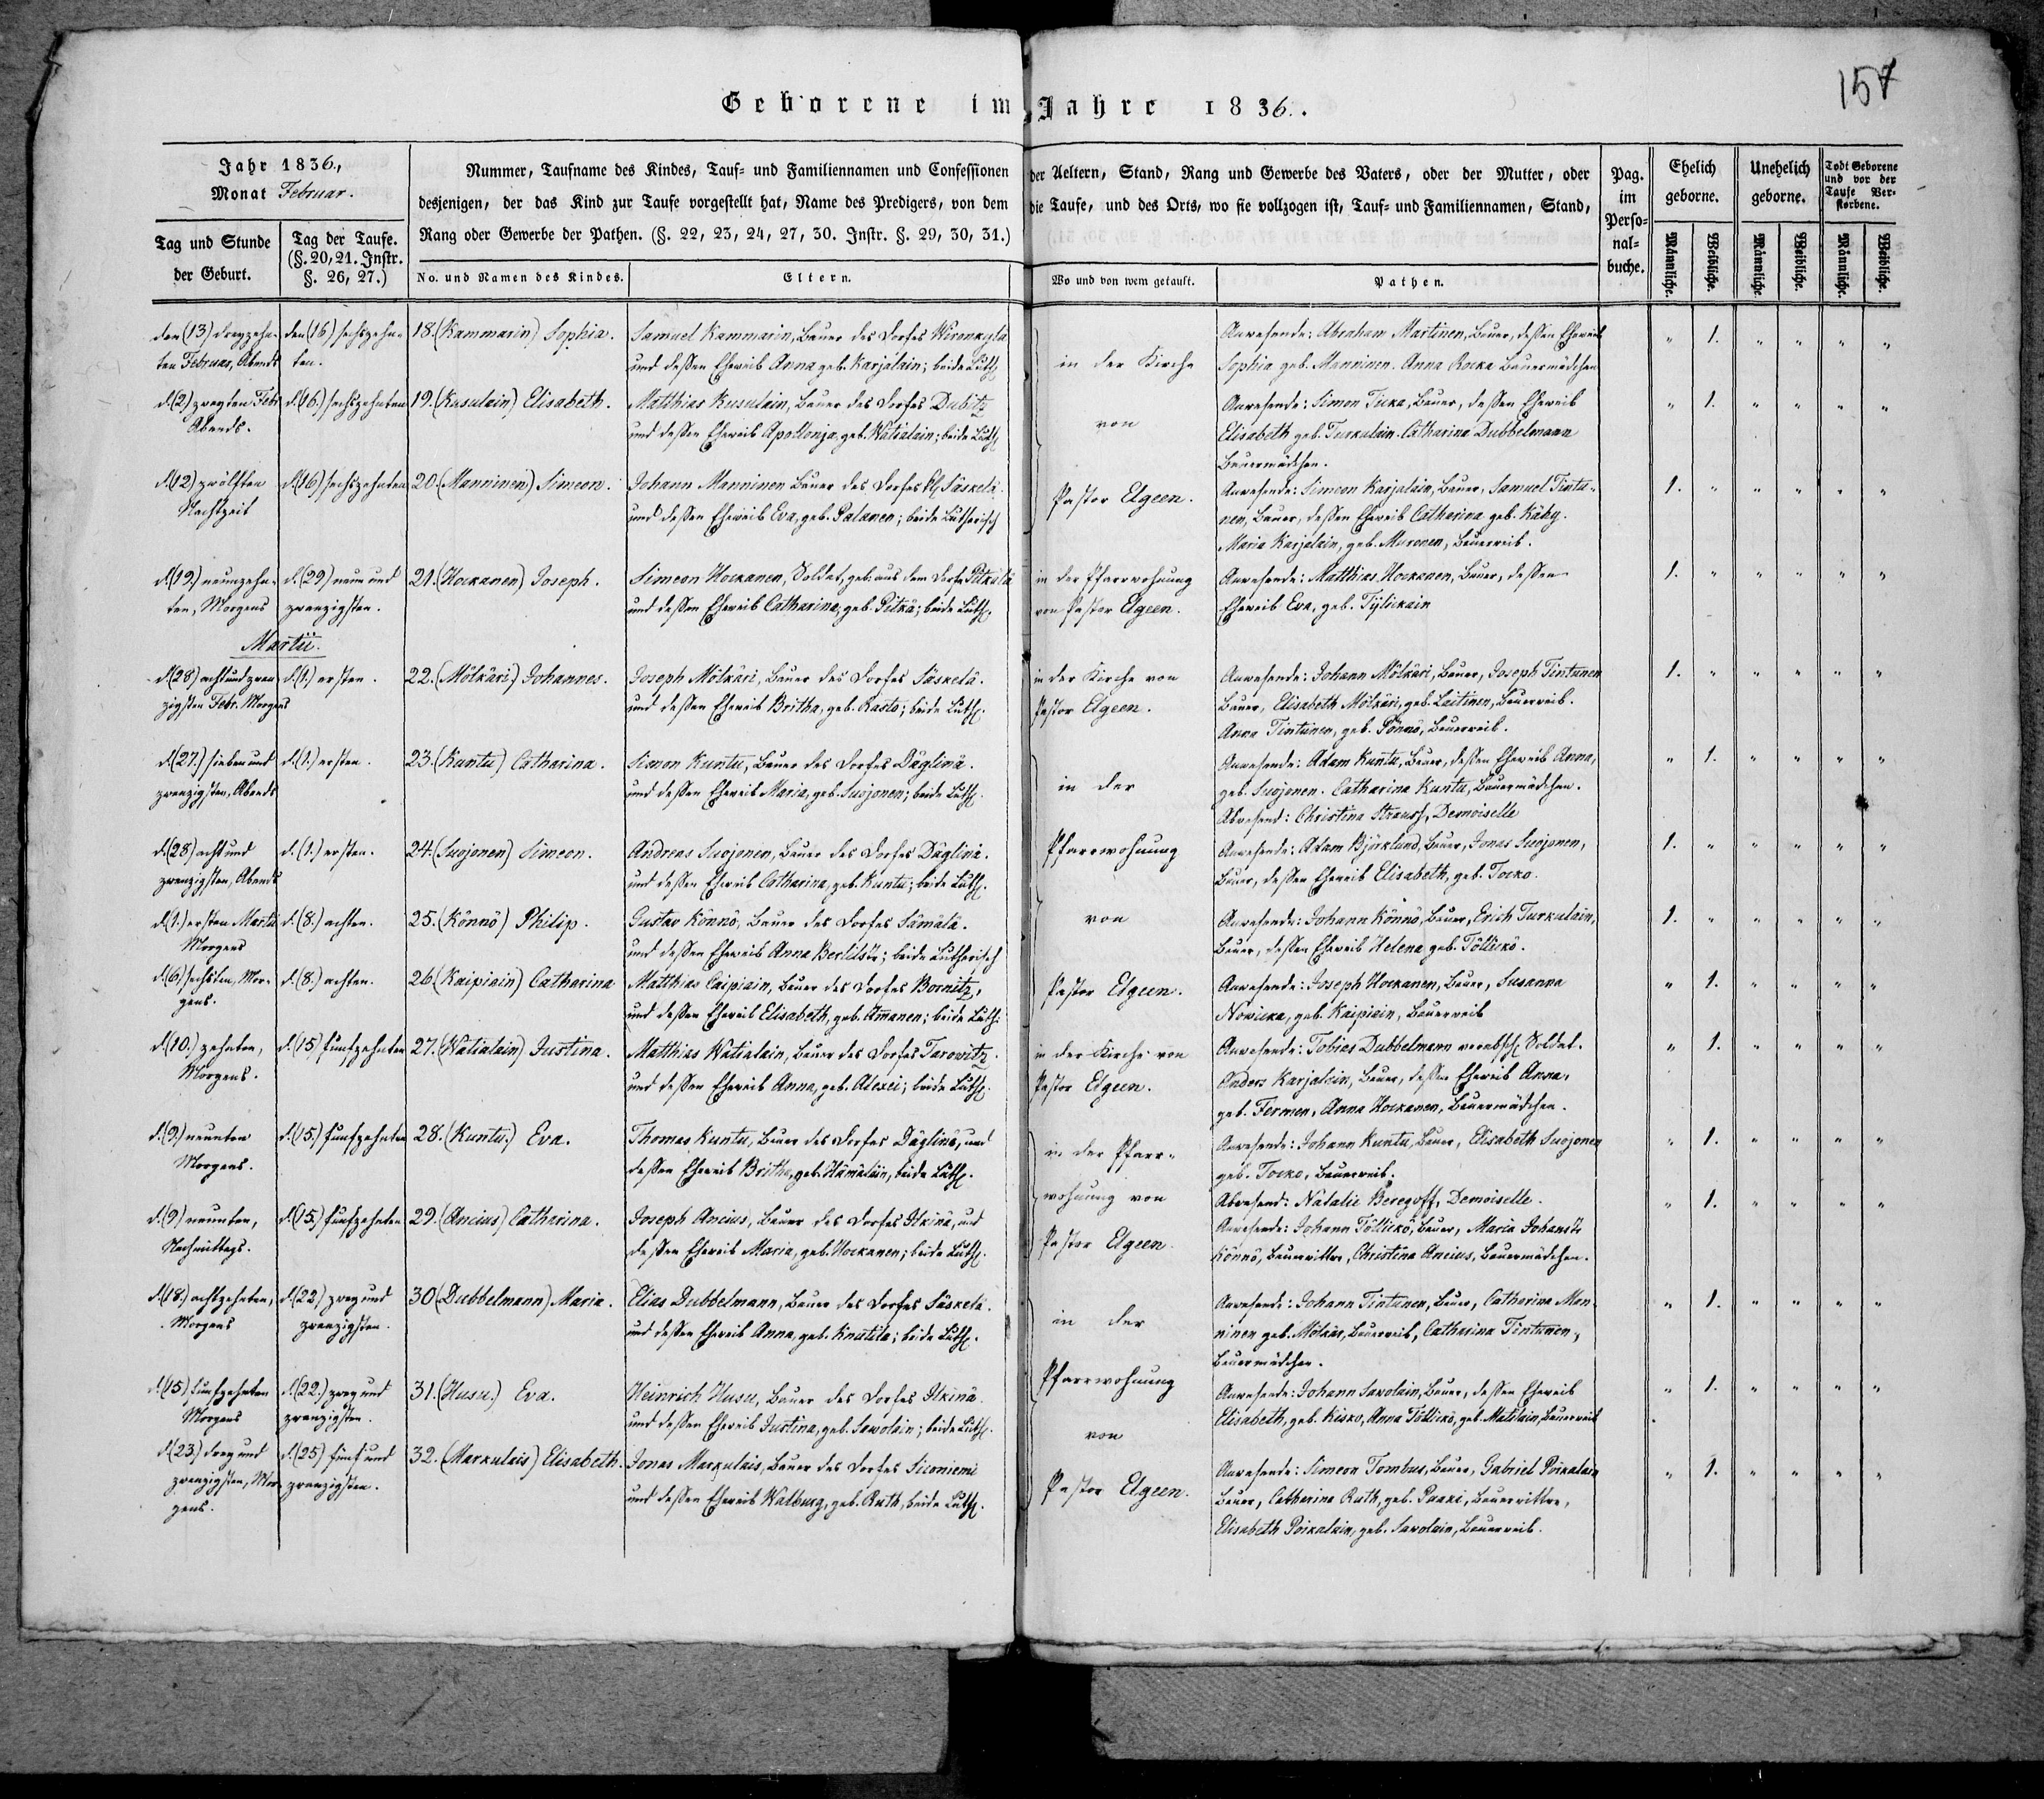 157
Geborene im Jahre 1836.
Jahr 1836,
Monat Februar.
Tag und Stunde
der Geburt.
Tag der Taufe.
(§. 20, 21. Instr.
§. 26, 27.)
Nummer, Taufname des Kindes, Tauf- und Familiennamen und Confessionen der Aeltern, Stand, Rang und Gewerbe des Vaters, oder der Mutter, oder
desjenigen, der das Kind zur Taufe vorgestellt hat, Name des Predigers, von dem die Taufe, und des Orts, wo sie vollzogen ist, Tauf- und Familiennamen, Stand,
Rang oder Gewerbe der Pathen. (§. 22, 23, 24, 27, 30. Instr. §. 29, 30, 31.)
No. und Namen des Kindes.
Eltern.
Wo und von wem getauft.
Pathen.
Pag.
im
Perso-
nal-
buche.
Ehelich
geborne.
Unehelich
geborne.
Todt Geborene
und vor der
Taufe Ver-
storbene.
Männliche.
Weibliche.
Männliche.
Weibliche.
Männliche.
Weibliche.
den (13) dreyzehn-
ten Februar, Abends
den (16) sechszehn-
ten.
18. (Kammarin) Sophia.
Samuel Kammarin, Bauer des Dorfes Wironkylä
und deßen Eheweib Anna geb. Karjalain; beide Luth.
in der Kirche
Anwesende: Abraham Martinen, Bauer, deßen Eheweib
Sophia geb. Manninen. Anna Rocka Bauermädchen
" 1. " " " "
d. (2) zweyten Febr.
Abends.
d. (16.) sechszehnten
19. (Kusulain) Elisabeth.
Matthias Kusulain, Bauer des Dorfes Dubitz
und deßen Eheweib Apollonja, geb. Watialain; beide Luth.
von
Anwesende: Simon Ticka, Bauer, deßen Eheweib
Elisabeth geb. Turkulain. Catharina Dubbelmann
Bauermädchen.
" 1. " " " "
d. (12) zwölften
Nachtzeit
d. (16) sechszehnten
20. (Manninen) Simeon.
Johann Manninen Bauer des Dorfes Kl. Säskelä.
und deßen Eheweib Eva, geb. Palanen; beide Lutherisch
Pastor Elgeen.
Anwesende: Simeon Karjalain, Bauer, Samuel Tintu-
nen, Bauer, deßen Eheweib Catharina geb. Käky.
Maria Karjalain, geb. Muronen, Bauerweib.
1. " " " " "
d. (19.) neunzehn-
ten, Morgens
d. (29) neun und
zwanzigsten.
21. (Hockanen) Joseph.
Simeon Hockanen, Soldat, geb. aus dem Dorfe Pitkälä
und deßen Eheweib Catharina, geb. Pitkä; beide Luth.
in der Pfarrwohnung
von Pastor Elgeen.
Anwesende: Matthias Hockanen, Bauer, deßen
Eheweib Eva, geb. Tylickain
1. " " " " "
Martii.
d. (28) acht und zwan
zigsten Febr. Morgens
d. (1.) ersten.
22. (Mölkäri) Johannes.
Joseph Mölkäri, Bauer des Dorfes Säskelä.
und deßen Eheweib Britha, geb. Rasto; beide Luth.
in der Kirche von
Pastor Elgeen.
Anwesende: Johann Mölkäri, Bauer, Joseph Tintunen
Bauer, Elisabeth Mölkäri, geb. Laitinen, Bauerweib.
Anna Tintunen, geb. Pönnö, Bauerweib.
1. " " " " "
d. (27.) sieben und
zwanzigsten, Abends
d. (1.) ersten.
23. (Kuntu) Catharina.
Simon Kuntu, Bauer des Dorfes Däglinä.
und deßen Eheweib Maria, geb. Suojonen; beide Luth.
in der
Anwesende: Adam Kuntu, Bauer, deßen Eheweib Anna,
geb. Suojonen. Catharina Kuntu, Bauermädchen.
Abwesend: Christina Strauss, Demoiselle
" 1. " " " "
d. (28) acht und
zwanzigsten, Abends
d. (1.) ersten.
24. (Suojonen) Simeon.
Andreas Suojonen, Bauer des Dorfes Däglinä.
und deßen Eheweib Catharina, geb. Kuntu; beide Luth.
Pfarrwohnung
Anwesende: Adam Björklund, Bauer, Jonas Suojonen,
Bauer, deßen Eheweib Elisabeth, geb. Tocko.
1. " " " " "
d. (1.) ersten Martii
Morgens
d. (8.) achten.
25. (Könnö) Philip.
Gustav Könnö, Bauer des Dorfes Sämälä.
und deßen Eheweib Anna Berlitstr; beide Lutherisch
von
Anwesende: Johann Könnö, Bauer, Erich Turkulain,
Bauer, deßen Eheweib Helena geb. Töllickö.
1. " " " " "
d. (6) sechsten, Mor-
gens.
d. (8.) achten.
26. (Kaipiain) Catharina
Matthias Caipiain, Bauer des Dorfes Bornitz,
und deßen Eheweib Elisabeth, geb. Amanen; beide Luth.
Pastor Elgeen.
Anwesende: Joseph Hockanen, Bauer, Susanna
Nowicka, geb. Kaipiain, Bauerweib
" 1. " " " "
d. (10.) zehnten,
Morgens.
d. (15) funfzehnten
27. (Watialain) Justina.
Matthias Watialain, Bauer des Dorfes Tarowitz.
und deßen Eheweib Anna, geb. Alexei; beide Luth.
in der Kirche von
Pastor Elgeen.
Anwesende: Tobias Dubbelmann verabsch. Soldat.
Anders Karjalain, Bauer, deßen Eheweib Anna,
geb. Termen, Anna Hockanen, Bauermädchen.
" 1. " " " "
d. (9.) neunten
Morgens.
d. (15.) funfzehnten
28. (Kuntu) Eva.
Thomas Kuntu, Bauer des Dorfes Däglinä, und
deßen Eheweib Britha, geb. Hämäläin, beide Luth.
in der Pfarr-
Anwesende: Johann Kuntu, Bauer, Elisabeth Suojonen
geb. Tocko, Bauerweib.
Abwesend: Natalie Beregoff, Demoiselle.
" 1. " " " "
d. (9) neunten,
Nachmittags.
d. (15) funfzehnten
29. (Ancius) Catharina.
Joseph Ancius, Bauer des Dorfes Ilkinä, und
deßen Eheweib Maria, geb. Hockanen; beide Luth.
wohnung von
Pastor Elgeen
Anwesende: Johann Töllickö, Bauer, Maria Johanstr
Könnö, Bauerwittwe, Christina Ancius, Bauermädchen.
" 1. " " " "
d. (18.) achtzehnten,
Morgens
d. (22.) zwey und
zwanzigsten.
30 (Dubbelmann) Maria.
Elias Dubbelmann, Bauer des Dorfes Säskelä.
und deßen Eheweib Anna, geb. Knutila; beide Luth.
in der
Anwesende: Johann Tintunen, Bauer, Catharina Man-
ninen geb. Mölkär, Bauerweib, Catharina Tintunen,
Bauermädchen.
" 1. " " " "
d. (15) funfzehnten
Morgens
d. (22.) zwey und
zwanzigsten.
31. (Husu.) Eva.
Heinrich Husu, Bauer des Dorfes Ilkinä.
und deßen Eheweib Justina, geb. Sawolain; beide Luth.
Pfarrwohnung
von
Anwesende: Johann Sawolain, Bauer, deßen Eheweib
Elisabeth, geb. Kisko, Anna Töllickö, geb. Matilain, Bauerweib
" 1. " " " "
d. (23.) drey und
zwanzigsten, Mor-
gens.
d. (25) fünf und
zwanzigsten.
32. (Markulais) Elisabeth.
Jonas Markulais, Bauer des Dorfes Siconiemi
und deßen Eheweib Walburg, geb. Ruth, beide Luth.
Pastor Elgeen.
Anwesende: Simeon Tombus, Bauer, Gabriel Poikalain
Bauer, Catharina Ruth, geb. Paaki, Bauerwittwe,
Elisabeth Poikalain, geb. Sawolain, Bauerweib.
" 1. " " " "